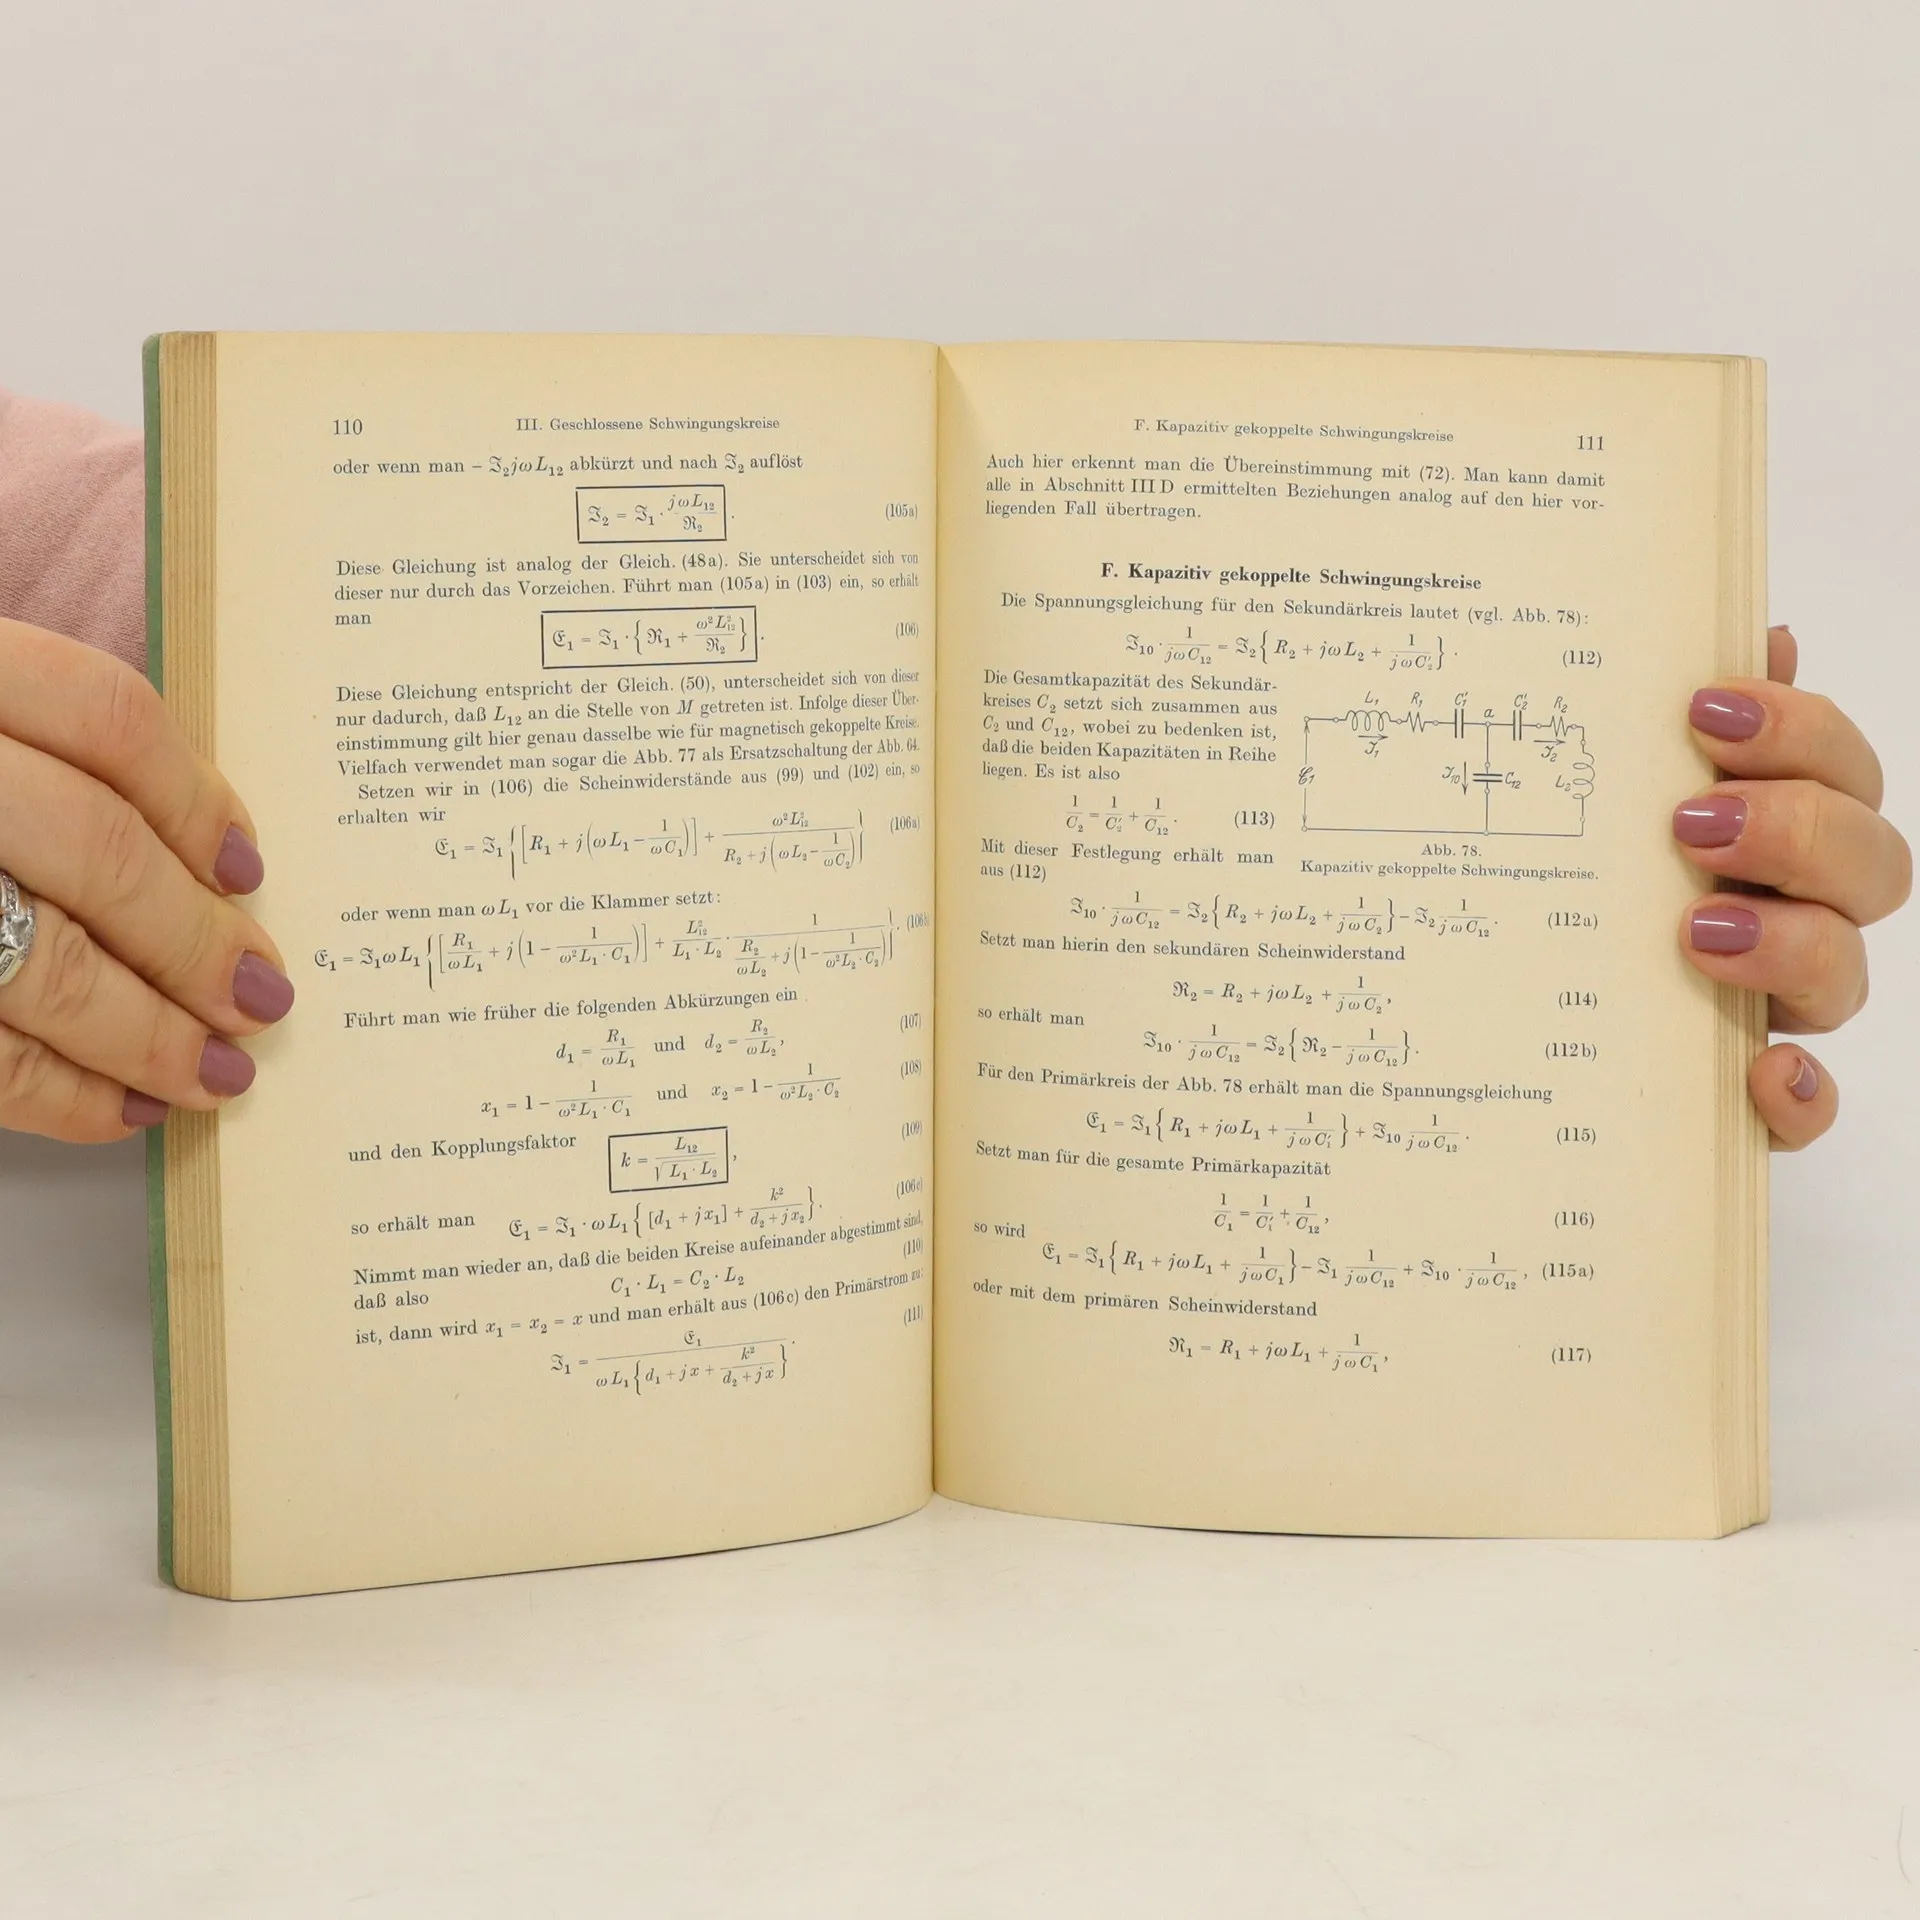 110
III. Geschlossene Schwingungskreise
oder wenn man − ℑ₂jωL₁₂ abkürzt und nach ℑ₂ auflöst
ℑ₂ = ℑ₁ · jωL₁₂ / ℜ₂ . (105a)
Diese Gleichung ist analog der Gleich. (48a). Sie unterscheidet sich von
dieser nur durch das Vorzeichen. Führt man (105a) in (103) ein, so erhält
man
𝔈₁ = ℑ₁ · { ℜ₁ + ω²L₁₂² / ℜ₂ } . (106)
Diese Gleichung entspricht der Gleich. (50), unterscheidet sich von dieser
nur dadurch, daß L₁₂ an die Stelle von M getreten ist. Infolge dieser Über-
einstimmung gilt hier genau dasselbe wie für magnetisch gekoppelte Kreise.
Vielfach verwendet man sogar die Abb. 77 als Ersatzschaltung der Abb. 64.
Setzen wir in (106) die Scheinwiderstände aus (99) und (102) ein, so
erhalten wir
𝔈₁ = ℑ₁ { [ R₁ + j ( ωL₁ − 1 / ωC₁ ) ] + ω²L₁₂² / ( R₂ + j ( ωL₂ − 1 / ωC₂ ) ) } (106a)
oder wenn man ωL₁ vor die Klammer setzt:
𝔈₁ = ℑ₁ωL₁ { [ R₁ / ωL₁ + j ( 1 − 1 / ω²L₁ · C₁ ) ] + L₁₂² / L₁ · L₂ · 1 / ( R₂ / ωL₂ + j ( 1 − 1 / ω²L₂ · C₂ ) ) } . (106b
Führt man wie früher die folgenden Abkürzungen ein
d₁ = R₁ / ωL₁ und d₂ = R₂ / ωL₂ , (107)
x₁ = 1 − 1 / ω²L₁ · C₁ und x₂ = 1 − 1 / ω²L₂ · C₂ (108)
und den Kopplungsfaktor
k = L₁₂ / √L₁ · L₂ , (109)
so erhält man 𝔈₁ = ℑ₁ · ωL₁ { [d₁ + jx₁] + k² / d₂ + jx₂ } . (106c)
Nimmt man wieder an, daß die beiden Kreise aufeinander abgestimmt sind,
daß also C₁ · L₁ = C₂ · L₂ (110)
ist, dann wird x₁ = x₂ = x und man erhält aus (106c) den Primärstrom zu:
ℑ₁ = 𝔈₁ / ωL₁ { d₁ + jx + k² / d₂ + jx } . (111)
F. Kapazitiv gekoppelte Schwingungskreise
111
Auch hier erkennt man die Übereinstimmung mit (72). Man kann damit
alle in Abschnitt III D ermittelten Beziehungen analog auf den hier vor-
liegenden Fall übertragen.
F. Kapazitiv gekoppelte Schwingungskreise
Die Spannungsgleichung für den Sekundärkreis lautet (vgl. Abb. 78):
ℑ₁₀ · 1 / jωC₁₂ = ℑ₂ { R₂ + jωL₂ + 1 / jωC₂′ } . (112)
Die Gesamtkapazität des Sekundär-
kreises C₂ setzt sich zusammen aus
C₂ und C₁₂, wobei zu bedenken ist,
daß die beiden Kapazitäten in Reihe
liegen. Es ist also
1 / C₂ = 1 / C₂′ + 1 / C₁₂ . (113)
L₁ R₁ C₁′ a C₂′ R₂
ℑ₁ ℑ₂
𝔈₁ ℑ₁₀ C₁₂ L₂
Abb. 78.
Kapazitiv gekoppelte Schwingungskreise.
Mit dieser Festlegung erhält man
aus (112)
ℑ₁₀ · 1 / jωC₁₂ = ℑ₂ { R₂ + jωL₂ + 1 / jωC₂ } − ℑ₂ 1 / jωC₁₂ . (112a)
Setzt man hierin den sekundären Scheinwiderstand
ℜ₂ = R₂ + jωL₂ + 1 / jωC₂ , (114)
so erhält man
ℑ₁₀ · 1 / jωC₁₂ = ℑ₂ { ℜ₂ − 1 / jωC₁₂ } . (112b)
Für den Primärkreis der Abb. 78 erhält man die Spannungsgleichung
𝔈₁ = ℑ₁ { R₁ + jωL₁ + 1 / jωC₁′ } + ℑ₁₀ 1 / jωC₁₂ . (115)
Setzt man für die gesamte Primärkapazität
1 / C₁ = 1 / C₁′ + 1 / C₁₂ , (116)
so wird
𝔈₁ = ℑ₁ { R₁ + jωL₁ + 1 / jωC₁ } − ℑ₁ 1 / jωC₁₂ + ℑ₁₀ · 1 / jωC₁₂ , (115a)
oder mit dem primären Scheinwiderstand
ℜ₁ = R₁ + jωL₁ + 1 / jωC₁ , (117)